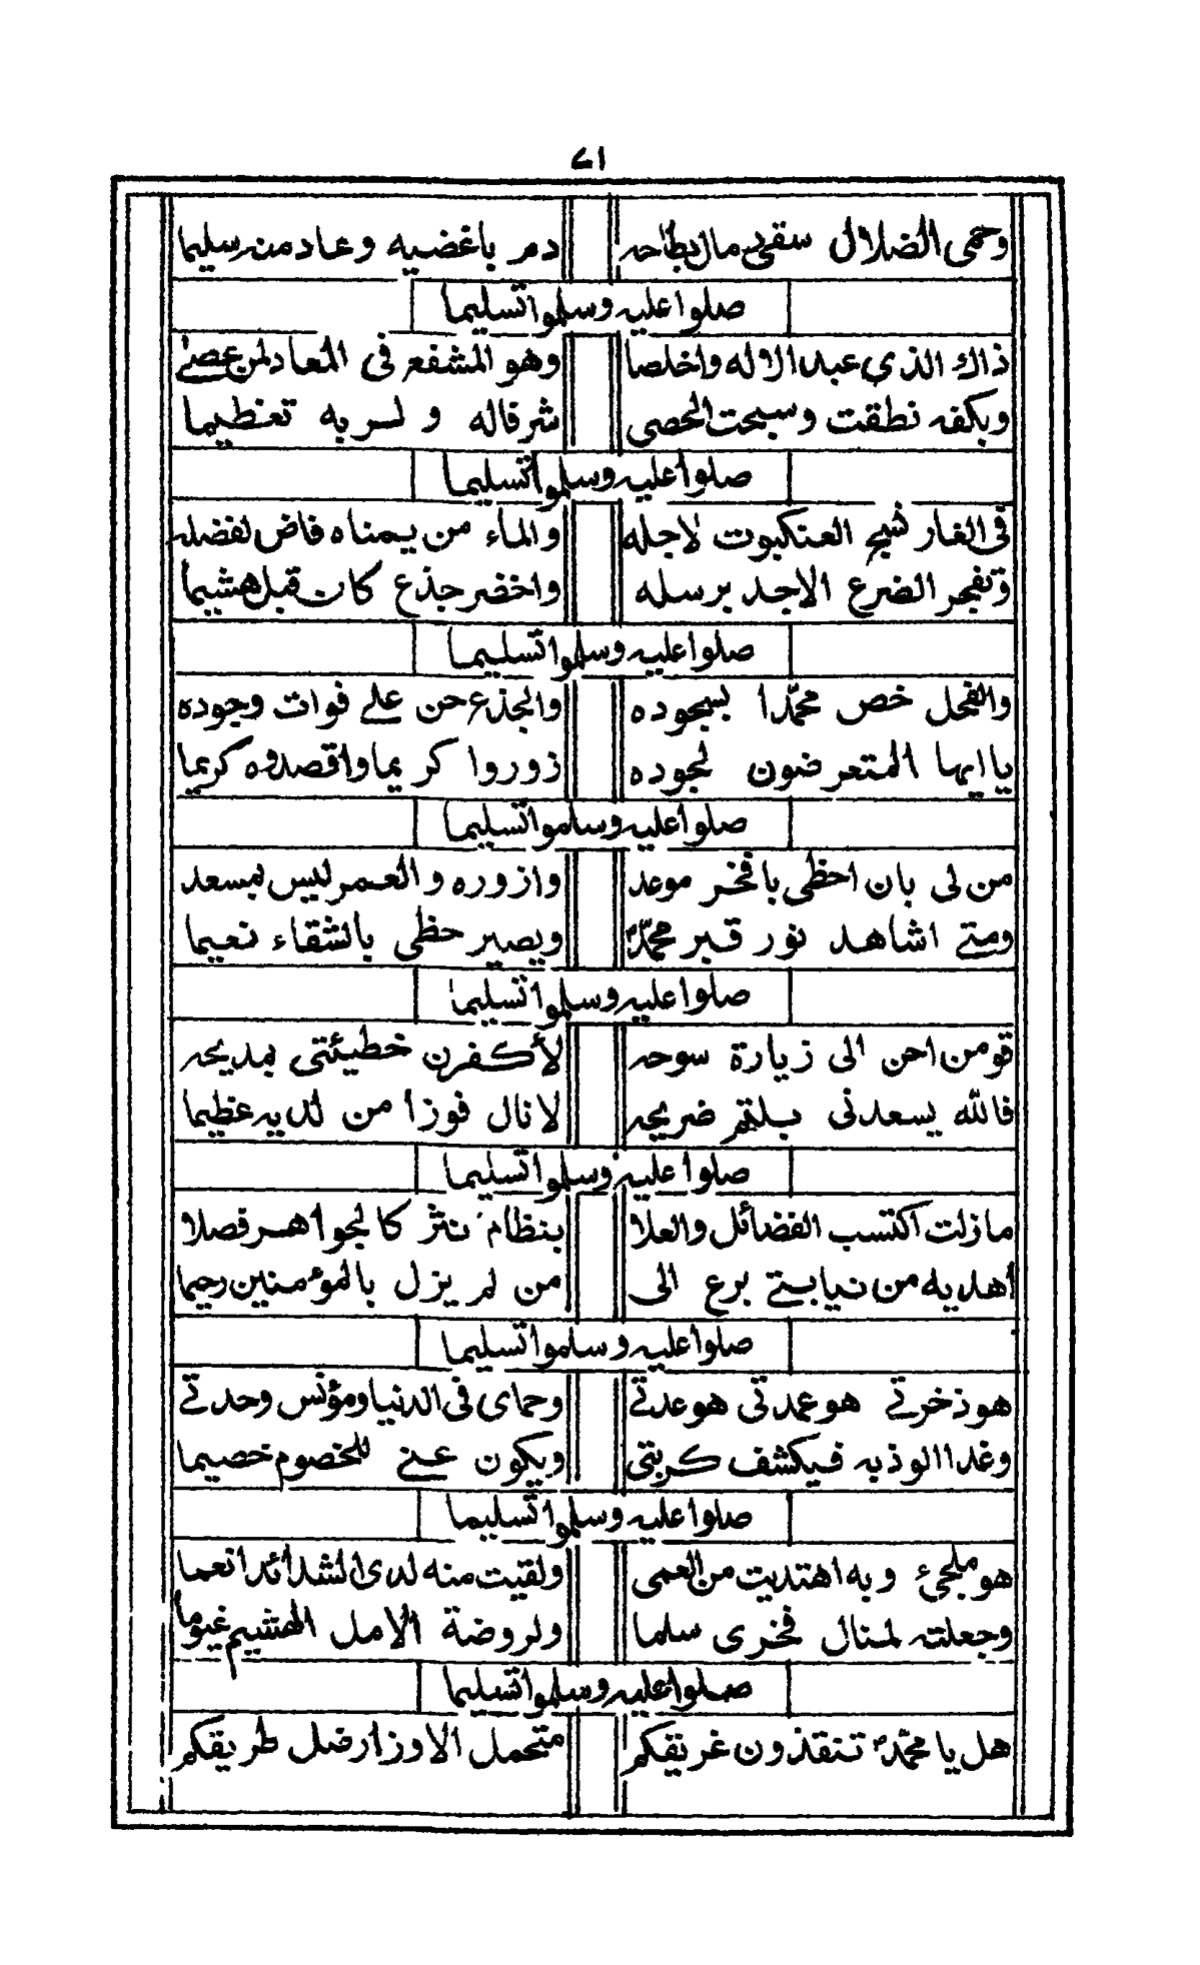 ٢١
وحمى الضلال سقى رمال بطاحه دم باغضيه وعاد منه سليما
صلوا عليه وسلموا تسليما
ذاك الذي عبد الاله واخلصا وهو المشفع فى المعاد لمن عصى
وبكفه نطقت وسبحت الحصى شرفا له ولربه تعظيما
صلوا عليه وسلموا تسليما
فى الغار نسج العنكبوت لاجله والماء من يمناه فاض لفضله
وتفجر الضرع الاجد برسله واخضر جذع كان قبل هشيما
صلوا عليه وسلموا تسليما
والفحل خص محمّدا بسجوده والجذع حن على فوات وجوده
يا ايها المتعرضون لجوده زوروا كريما واقصدوه كريما
صلوا عليه وسلموا تسليما
من لى بان احظى بافخر موعد وازوره والعمر ليس بمسعد
ومتى اشاهد نور قبر محمّد ويصير حظى بالشقاء نعيما
صلوا عليه وسلموا تسليما
قومن احن الى زيارة سوحه لأكفرن خطيئتى بمديحه
فالله يسعدنى بلثم ضريحه لانال فوزا من لديه عظيما
صلوا عليه وسلموا تسليما
مازلت اكتسب الفضائل والعلا بنظام نثر كالجواهر فصلا
اهديه من نيابتى برع الى من لم يزل بالمؤمنين رحيما
صلوا عليه وسلموا تسليما
هو ذخرتى هو عمدتى هو عدتى وحماى فى الدنيا ومؤنس وحدتى
وغدا الوذ به فيكشف كربتى ويكون عنى للخصوم خصيما
صلوا عليه وسلموا تسليما
هو ملجئ وبه اهتديت من العمى ولقيت منه لدى الشدائد انعما
وجعلته لمنال فخرى سلما ولروضة الامل الهشيم غيوما
صلوا عليه وسلموا تسليما
هل يا محمّد تنقذون غريقكم متحمل الاوزار ضل طريقكم